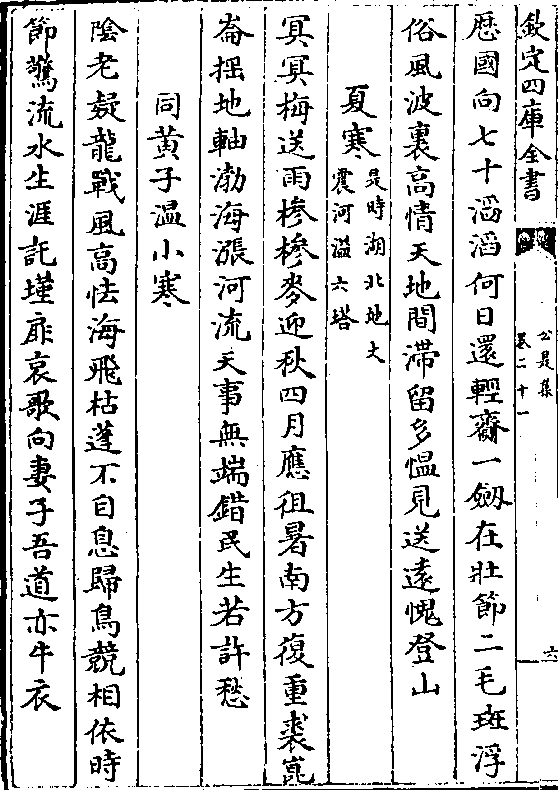 欽定四庫全書
公是集
卷二十一
六
歴國向七十滔滔何日還輕齎一劔在壯節二毛斑浮
俗風波裏高情天地間滯留多愠見送逺愧登山
夏寒
是時湖北地大
震河溢六塔
冥冥梅送雨槮槮麥迎秋四月應徂暑南方復重裘崑
崙揺地軸渤海漲河流天事無端錯民生若許愁
同黄子温小寒
陰老疑龍戰風高怯海飛枯蓬不自息歸鳥競相依時
節驚流水生涯託墐扉哀歌向妻子吾道亦牛衣